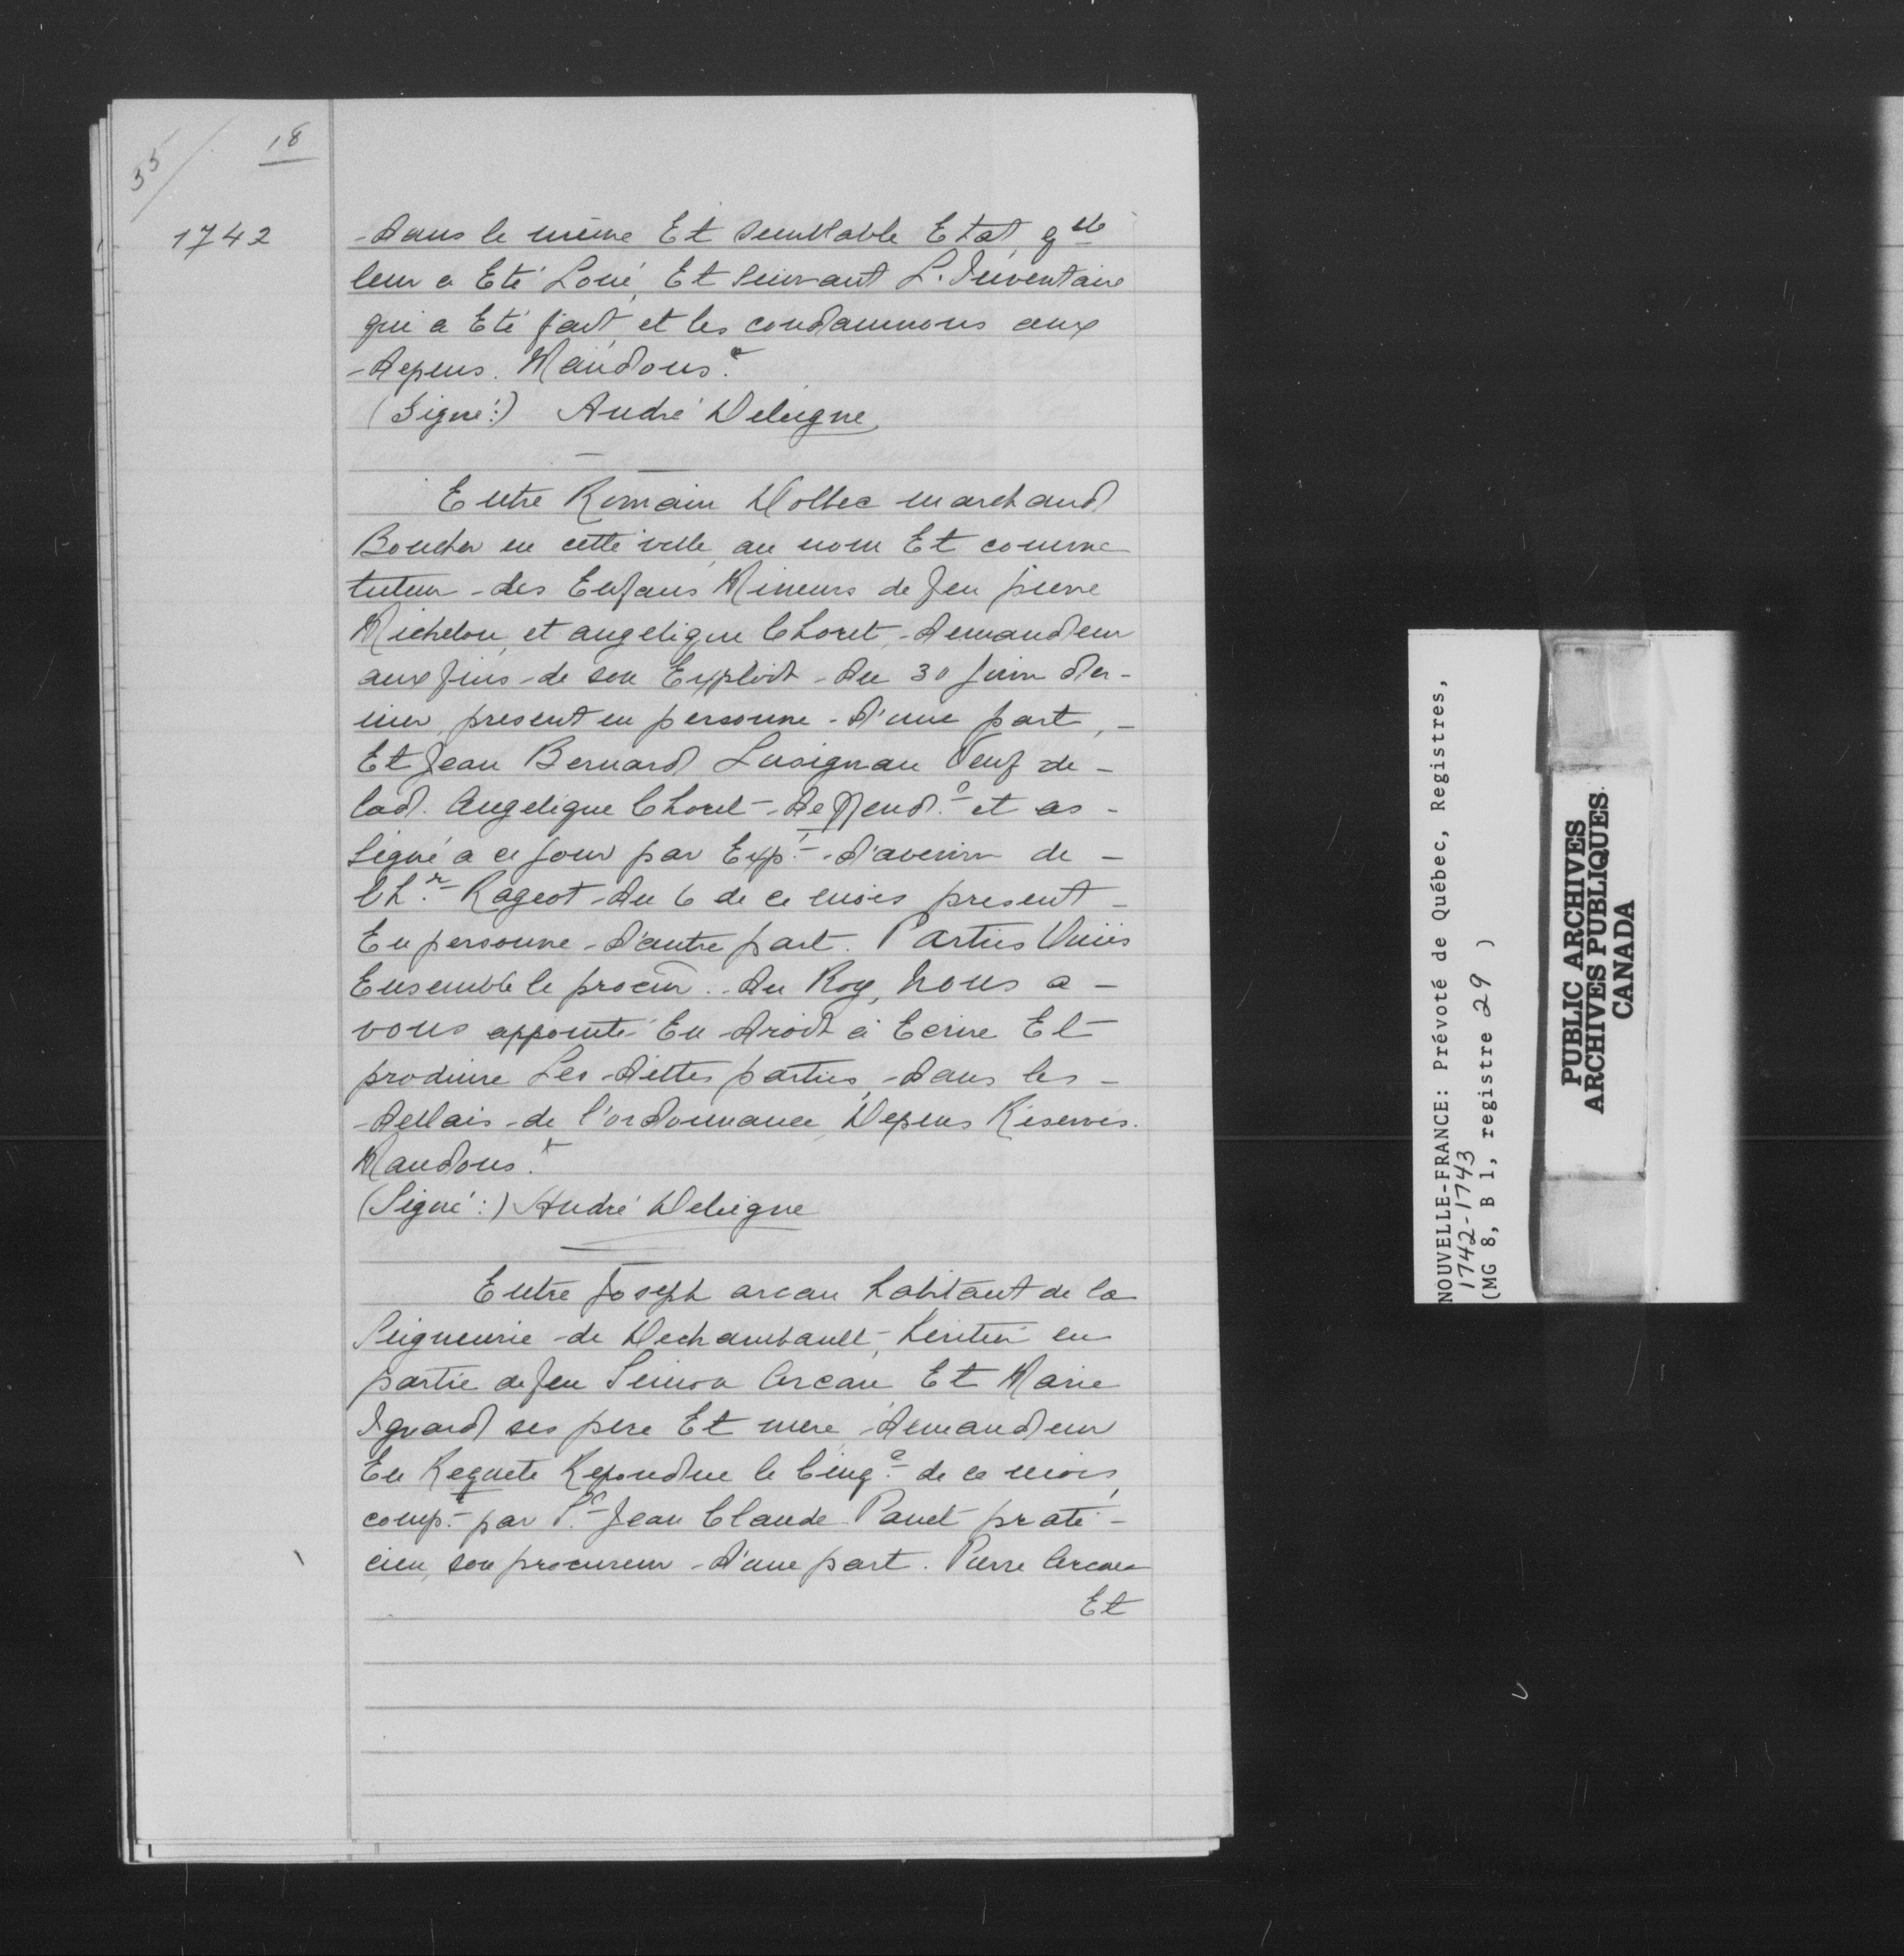 55/
18
1742
dans le même Et semblable Etat qlle
leur a Eté Loué, Et suivant L'Inventaire
qui a Eté fait et les condamnons aux
depens. Mandons &
(Signé:) André Deleigne
Entre Romain Dolbec marchand
Boucher en cette ville, au nom Et comme
tuteur des Enfans Mineurs de feu pierre
Michelon, et angelique Choret, demandeur
aux fins de son Exploit du 30 juin der-
nier, present en personne d'une part, -
Et Jean Bernard Lusignan Veuf de -
lad. Angelique Choret - deffend. et as -
signé a ce jour par Exp.t d'avenir de -
Ch.r Rageot du 6 de ce mois present -
En personne d'autre part. Parties Ouiis
Ensemble le procur. du Roy, Nous a -
vons appointé En droit à Ecrire Et
produire Les dittes parties, dans les -
dellais de l'ordonnance, Depens Réservés.
Mandons &
(Signé:) André Deleigne
Entre Joseph arcan habitant de la
Seigneurie de Dechambault, heritier en
partie de feu Simon Arcan Et Marie
Isnard ses pere Et mere, demandeur
En Requete Repondue le Cinq.e de ce mois,
comp.t par S.r Jean Claude Panet prati -
cien, son procureur d'une part. Pierre Arcan
Et
NOUVELLE-FRANCE: Prévoté de Québec, Registres,
1742-1743
(MG 8, B 1, registre 29 )
PUBLIC ARCHIVES
ARCHIVES PUBLIQUES
CANADA